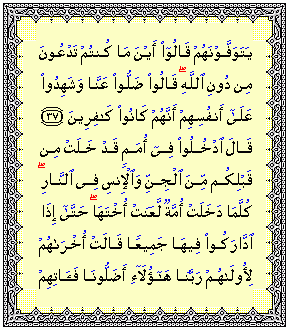 يَتَوَفَّوْنَهُمْ قَالُوٓا۟ أَيْنَ مَا كُنتُمْ تَدْعُونَ
مِن دُونِ ٱللَّهِ ۖ قَالُوا۟ ضَلُّوا۟ عَنَّا وَشَهِدُوا۟
عَلَىٰٓ أَنفُسِهِمْ أَنَّهُمْ كَانُوا۟ كَـٰفِرِينَ ﴿٣٧﴾
قَالَ ٱدْخُلُوا۟ فِىٓ أُمَمٍ قَدْ خَلَتْ مِن
قَبْلِكُم مِّنَ ٱلْجِنِّ وَٱلْإِنسِ فِى ٱلنَّارِ ۖ
كُلَّمَا دَخَلَتْ أُمَّةٌ لَّعَنَتْ أُخْتَهَا ۖ حَتَّىٰٓ إِذَا
ٱدَّارَكُوا۟ فِيهَا جَمِيعًا قَالَتْ أُخْرَىٰهُمْ
لِأُولَىٰهُمْ رَبَّنَا هَـٰٓؤُلَآءِ أَضَلُّونَا فَـَٔاتِهِمْ